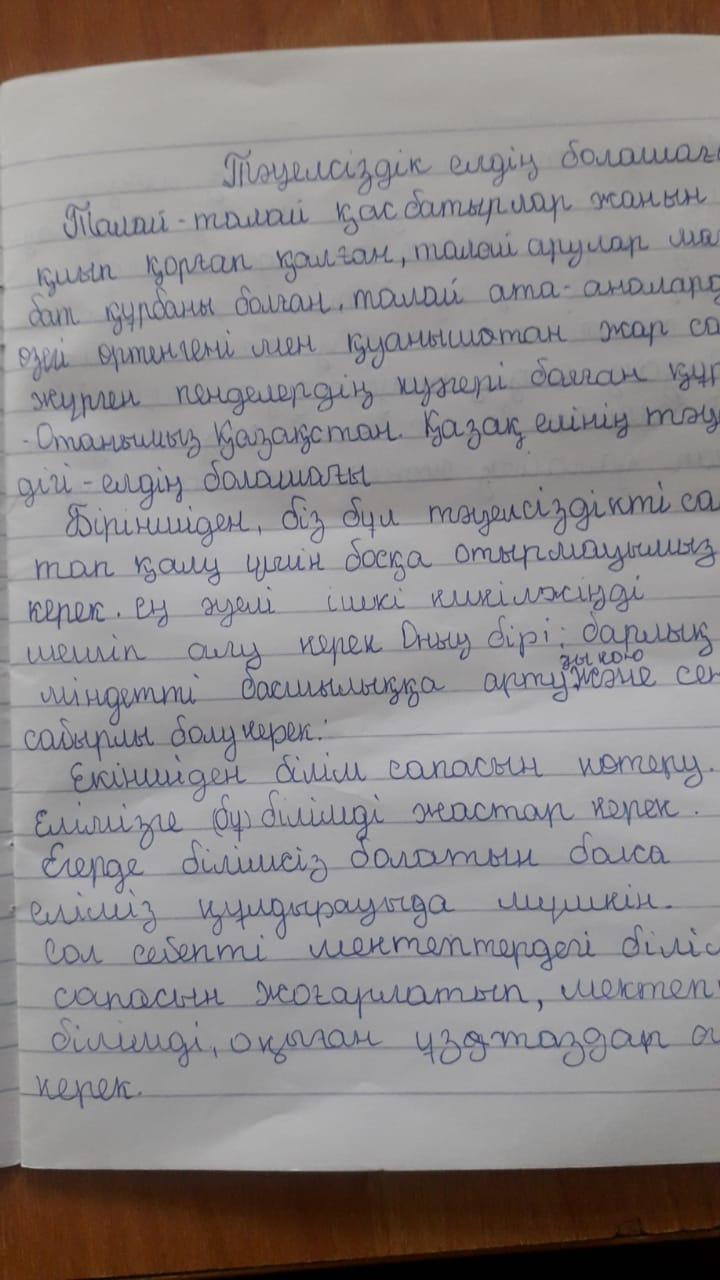 Тәуелсіздік елдің болашағы
Талай-талай қас батырлар жанын
қиып қорғап қалған, талай арулар ма
бат құрбаны болған, талай ата-аналард
өзегі өртенгені мен қуанышотан жар са
жүрген пенделердің күжері болған құр
-Отанымыз Қазақстан. Қазақ елінің тәу
дігі-елдің болашағы
Біріншіден, біз бұл тәуелсіздікті са
тап қалу үшін босқа отырмауымыз
керек. ең әуелі ішкі кикілжіңді
шешіп алу керек Оның бірі: барлық
зы қою
міндетті басшылыққа арту және сен
сабырлы болу керек.
Екіншіден білім сапасын көтеру.
Елімізге (бұ) білімді жастар керек.
Егерде білімсіз болатын болса
еліміз құлдырауыда мүмкін.
Сол себепті мектептердегі білі
сапасын жоғарлатып, мектеп
білімді, оқыған ұздтаздар
керек.